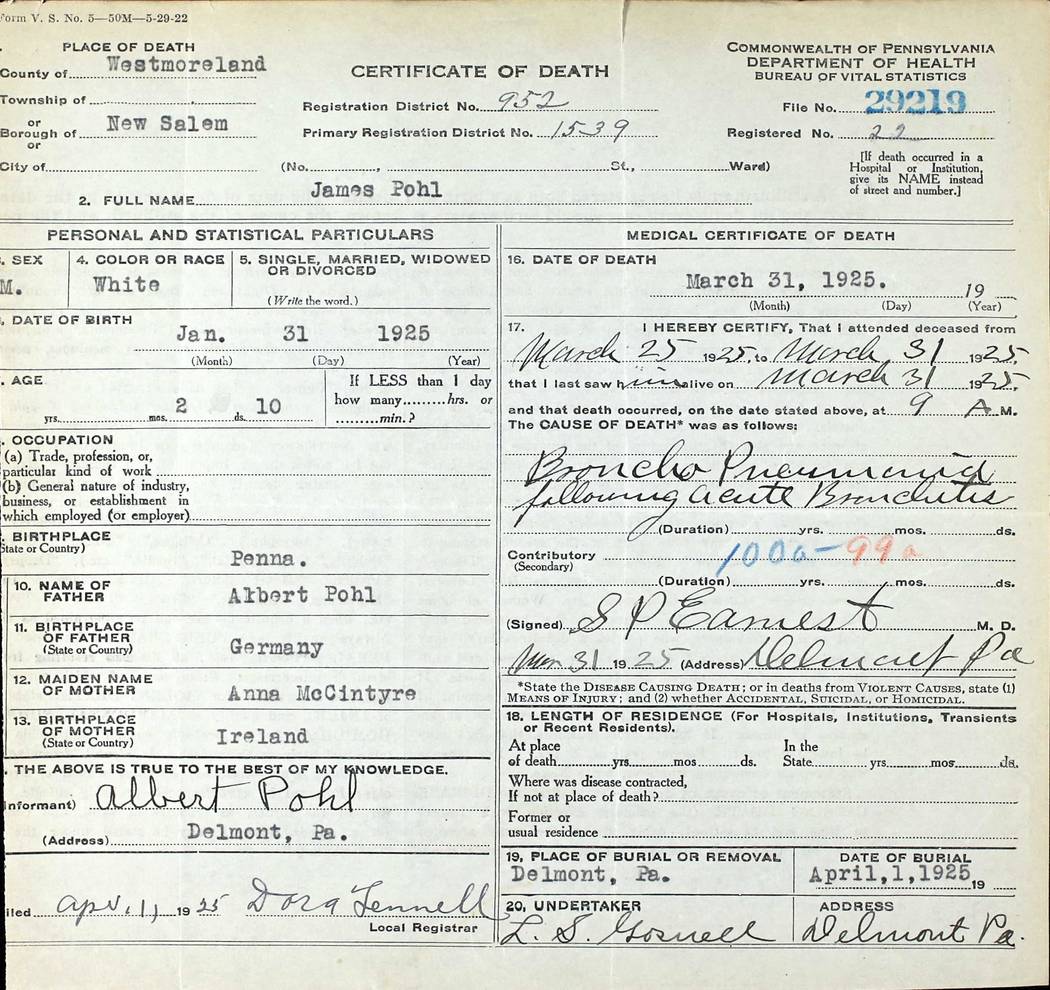 Form V. S. No. 5—50M—5-29-22
PLACE OF DEATH
County of Westmoreland
Township of
or
Borough of New Salem
or
City of
CERTIFICATE OF DEATH
Registration District No. 952
Primary Registration District No. 1539
(No. , St., Ward)
COMMONWEALTH OF PENNSYLVANIA
DEPARTMENT OF HEALTH
BUREAU OF VITAL STATISTICS
File No. 29219
Registered No. 22
[If death occurred in a
Hospital or Institution,
give its NAME instead
of street and number.]
2. FULL NAME James Pohl
PERSONAL AND STATISTICAL PARTICULARS
. SEX
M.
4. COLOR OR RACE
White
5. SINGLE, MARRIED, WIDOWED
OR DIVORCED
(Write the word.)
. DATE OF BIRTH
Jan. 31 1925
(Month) (Day) (Year)
. AGE
yrs. 2 mos. ds. 10
If LESS than 1 day
how many........hrs. or
.........min.?
. OCCUPATION
(a) Trade, profession, or,
particular kind of work
(b) General nature of industry,
business, or establishment in
which employed (or employer)
. BIRTHPLACE
State or Country)
Penna.
10. NAME OF
FATHER
Albert Pohl
11. BIRTHPLACE
OF FATHER
(State or Country)
Germany
12. MAIDEN NAME
OF MOTHER
Anna McCintyre
13. BIRTHPLACE
OF MOTHER
(State or Country)
Ireland
. THE ABOVE IS TRUE TO THE BEST OF MY KNOWLEDGE.
Informant) Albert Pohl
(Address) Delmont, Pa.
iled Apr. 1, 1925 Dora Fennell
Local Registrar
MEDICAL CERTIFICATE OF DEATH
16. DATE OF DEATH
March 31, 1925. 19
(Month) (Day) (Year)
17. I HEREBY CERTIFY, That I attended deceased from
March 25 1925, to March, 31 1925.
that I last saw him alive on March 31 1925.
and that death occurred, on the date stated above, at 9 A M.
The CAUSE OF DEATH* was as follows:
Broncho Pneumonia
following acute Bronchitis
(Duration) yrs. mos. ds.
Contributory 100a-99a
(Secondary)
(Duration) yrs. mos. ds.
(Signed) S P Earnest M. D.
Mar 31 1925 (Address) Delmont Pa
*State the DISEASE CAUSING DEATH; or in deaths from VIOLENT CAUSES, state (1)
MEANS OF INJURY; and (2) whether ACCIDENTAL, SUICIDAL, OR HOMICIDAL.
18. LENGTH OF RESIDENCE (For Hospitals, Institutions, Transients
or Recent Residents).
At place
of death yrs. mos ds.
In the
State yrs. mos. ds.
Where was disease contracted,
If not at place of death?
Former or
usual residence
19, PLACE OF BURIAL OR REMOVAL
Delmont, Pa.
DATE OF BURIAL
April,1,1925 19
20, UNDERTAKER
L. S. Gosnell
ADDRESS
Delmont Pa.